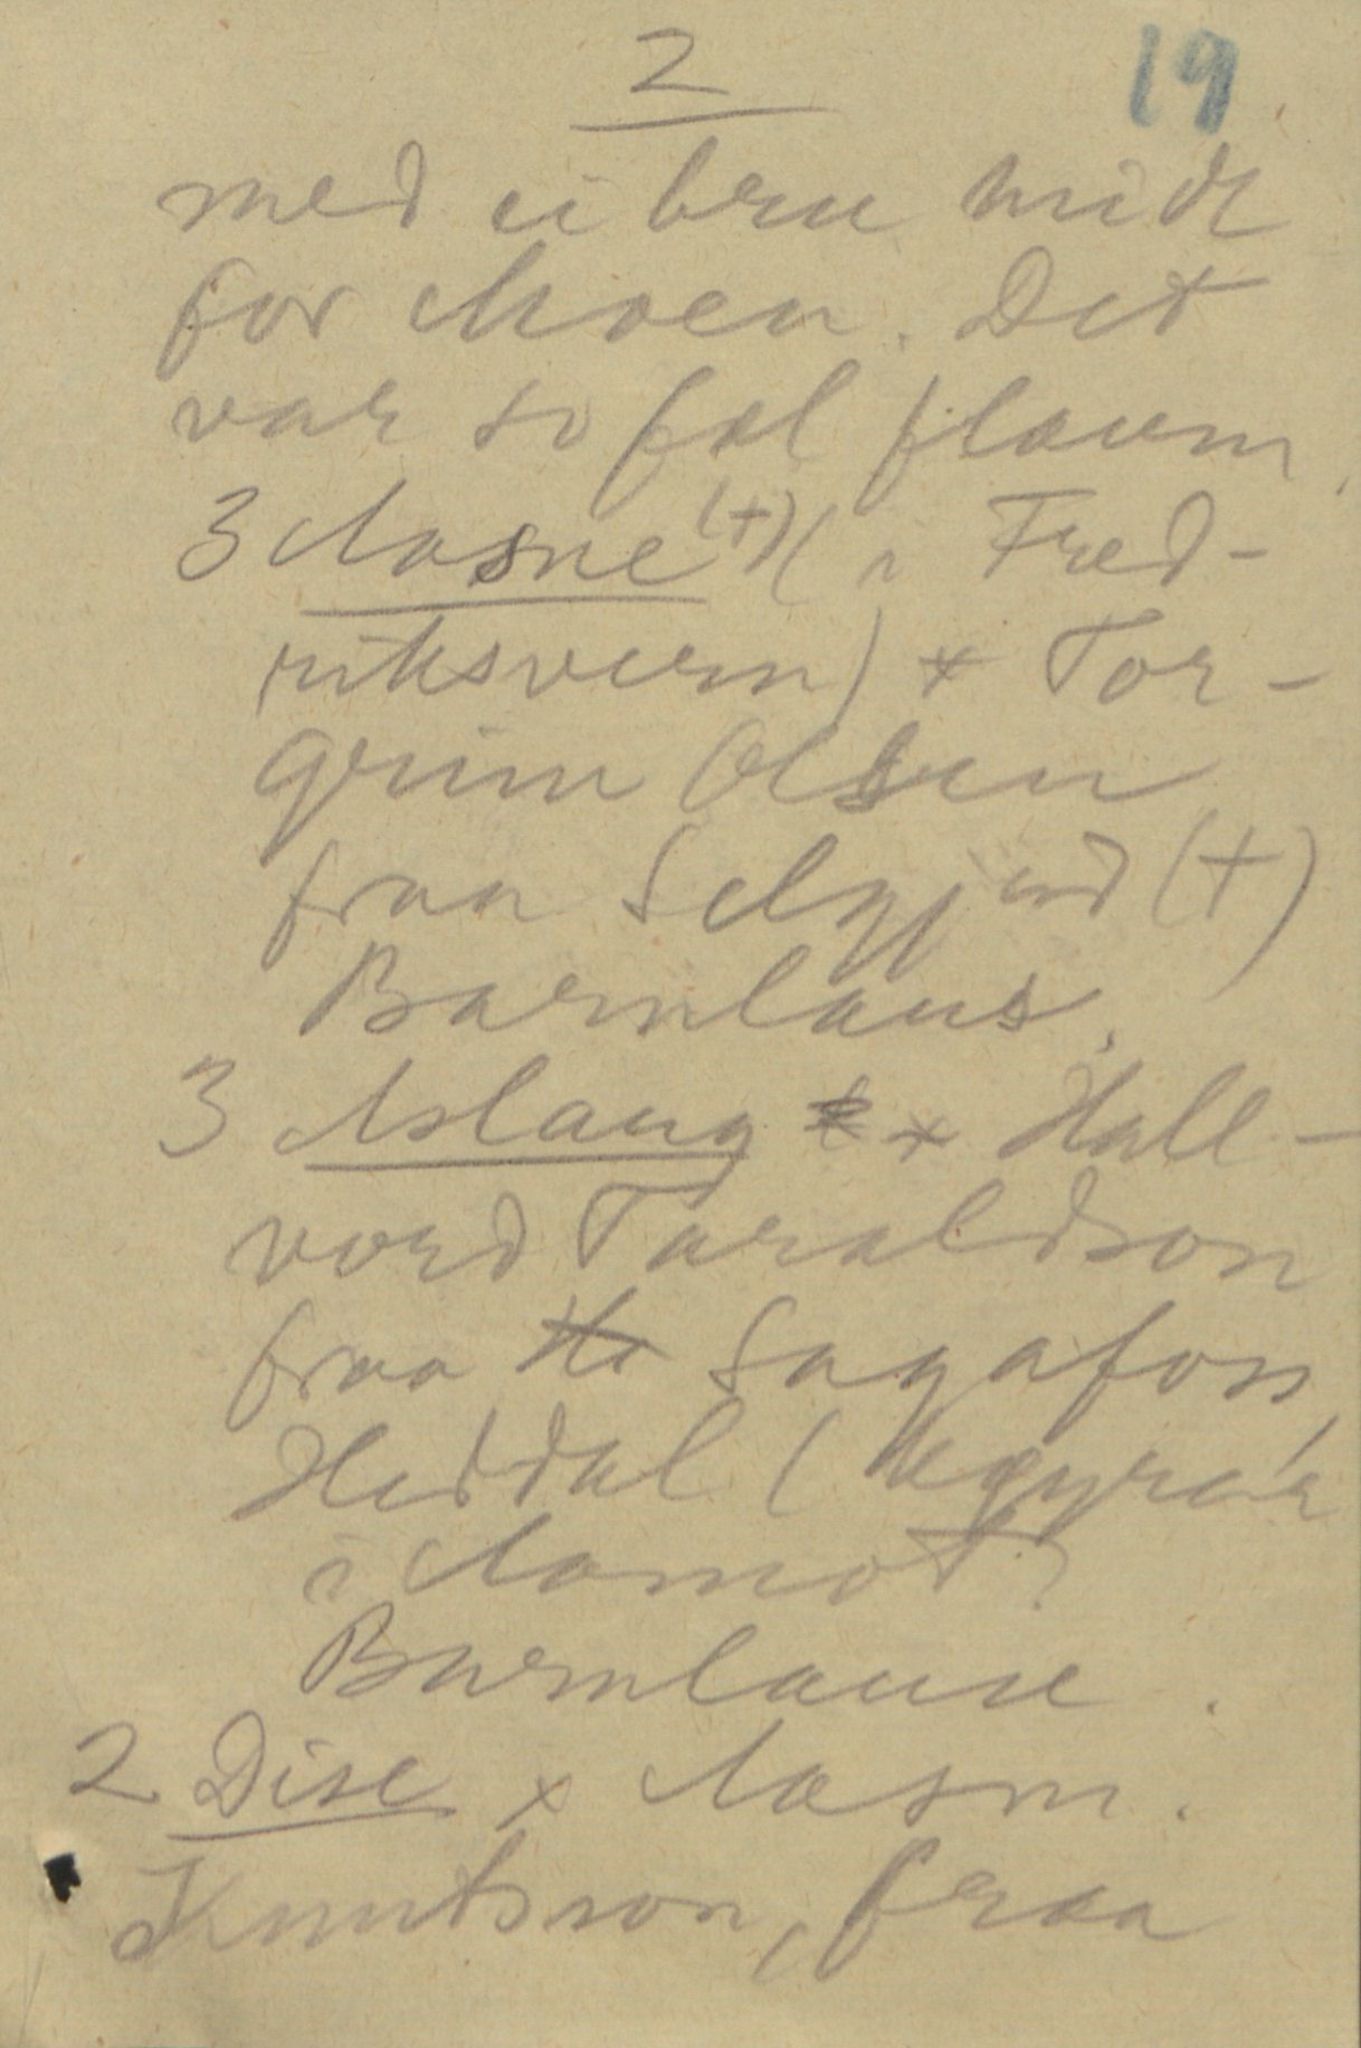 2
19
med ei bru midt
for Moen. Det
var so fæl flaum.
3 Aasne (+) (i Fred-
riksvern) × Tor-
grim Olsen
fraa Selgjord (+)
Barnlaus.
3 Aslaug × Hall-
vord Taraldson
fraa Sagafoss
Heddal (
i Aamot?
Barnlause.
2 Dise × Aasm.
Knutsson, fraa